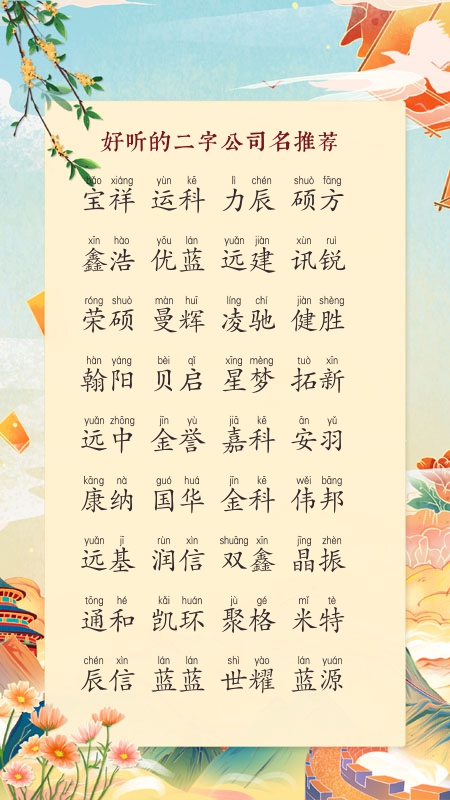 好听的二字公司名推荐
bǎo xiáng yùn kē lì chén shuò fāng
宝祥 运科 力辰 硕方
xīn hào yōu lán yuǎn jiàn xùn ruì
鑫浩 优蓝 远建 讯锐
róng shuò màn huī líng chí jiàn shèng
荣硕 曼辉 凌驰 健胜
hàn yáng bèi qǐ xīng mèng tuò xīn
翰阳 贝启 星梦 拓新
yuǎn zhōng jīn yù jiā kē ān yǔ
远中 金誉 嘉科 安羽
kāng nà guó huá jīn kē wěi bāng
康纳 国华 金科 伟邦
yuǎn jī rùn xìn shuāng xīn jīng zhèn
远基 润信 双鑫 晶振
tōng hé kǎi huán jù gé mǐ tè
通和 凯环 聚格 米特
chén xìn lán lán shì yào lán yuán
辰信 蓝蓝 世耀 蓝源